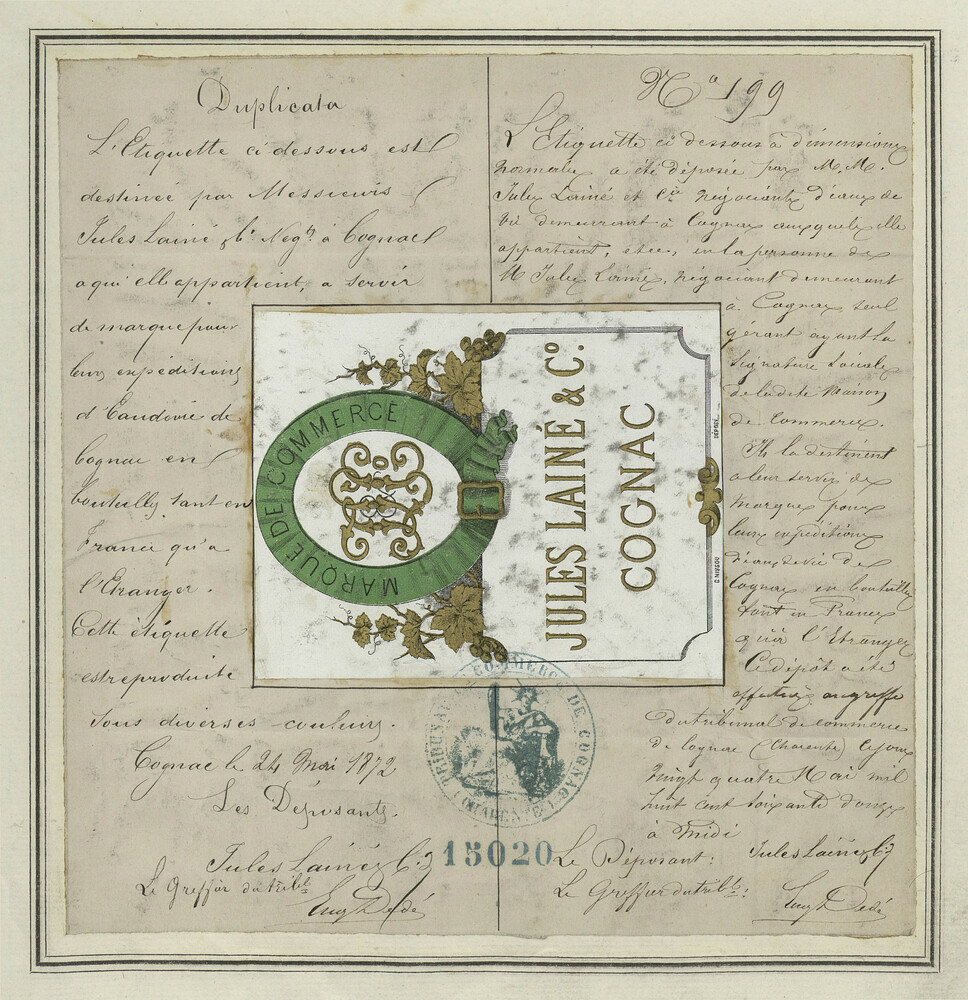 Duplicata
L'Etiquette ci dessous est
destinée par Messieurs
Jules Lainé & Cie Negts à Cognac
a qui elle appartient, a servir
de marque pour
leurs expéditions
d'Eaudevie de
Cognac en
bouteilles tant en
France qu'a
l'Etranger.
Cette étiquette
est reproduite
sous diverses couleurs.
Cognac le 24 Mai 1872
Les Déposants.
Jules Lainé & Cie
Le Greffier du trible
Eug Dedé
No 199
L'Etiquette ci dessous à dimensions
normales a été déposée par M.M.
Jules Lainé et Cie Négociants d'eaux de
vie demeurant à Cognac auxquels elle
appartient, et ce, en la personne de
M Jules Lainé, Négociant demeurant
à Cognac seul
gérant ayant la
signature sociale
de la dite Maison
de Commerce.
Ils la destinent
a leur servir de
marque pour
leurs expéditions
d'eaux de vie de
Cognac en bouteilles
tant en France
qu'à l'Etranger
Ce dépôt a été
effectué au greffe
du tribunal de commerce
de Cognac (Charente) ce jour
vingt quatre Mai mil
huit cent soixante douze
à Midi
Le Déposant: Jules Lainé & Cie
Le Greffier du trible:
Eug Dedé
MARQUE DE COMMERCE
JULES LAINÉ & Co.
COGNAC
DÉPOSÉ
TRIBUNAL DE COMMERCE DE COGNAC
(CHARENTE)
15020